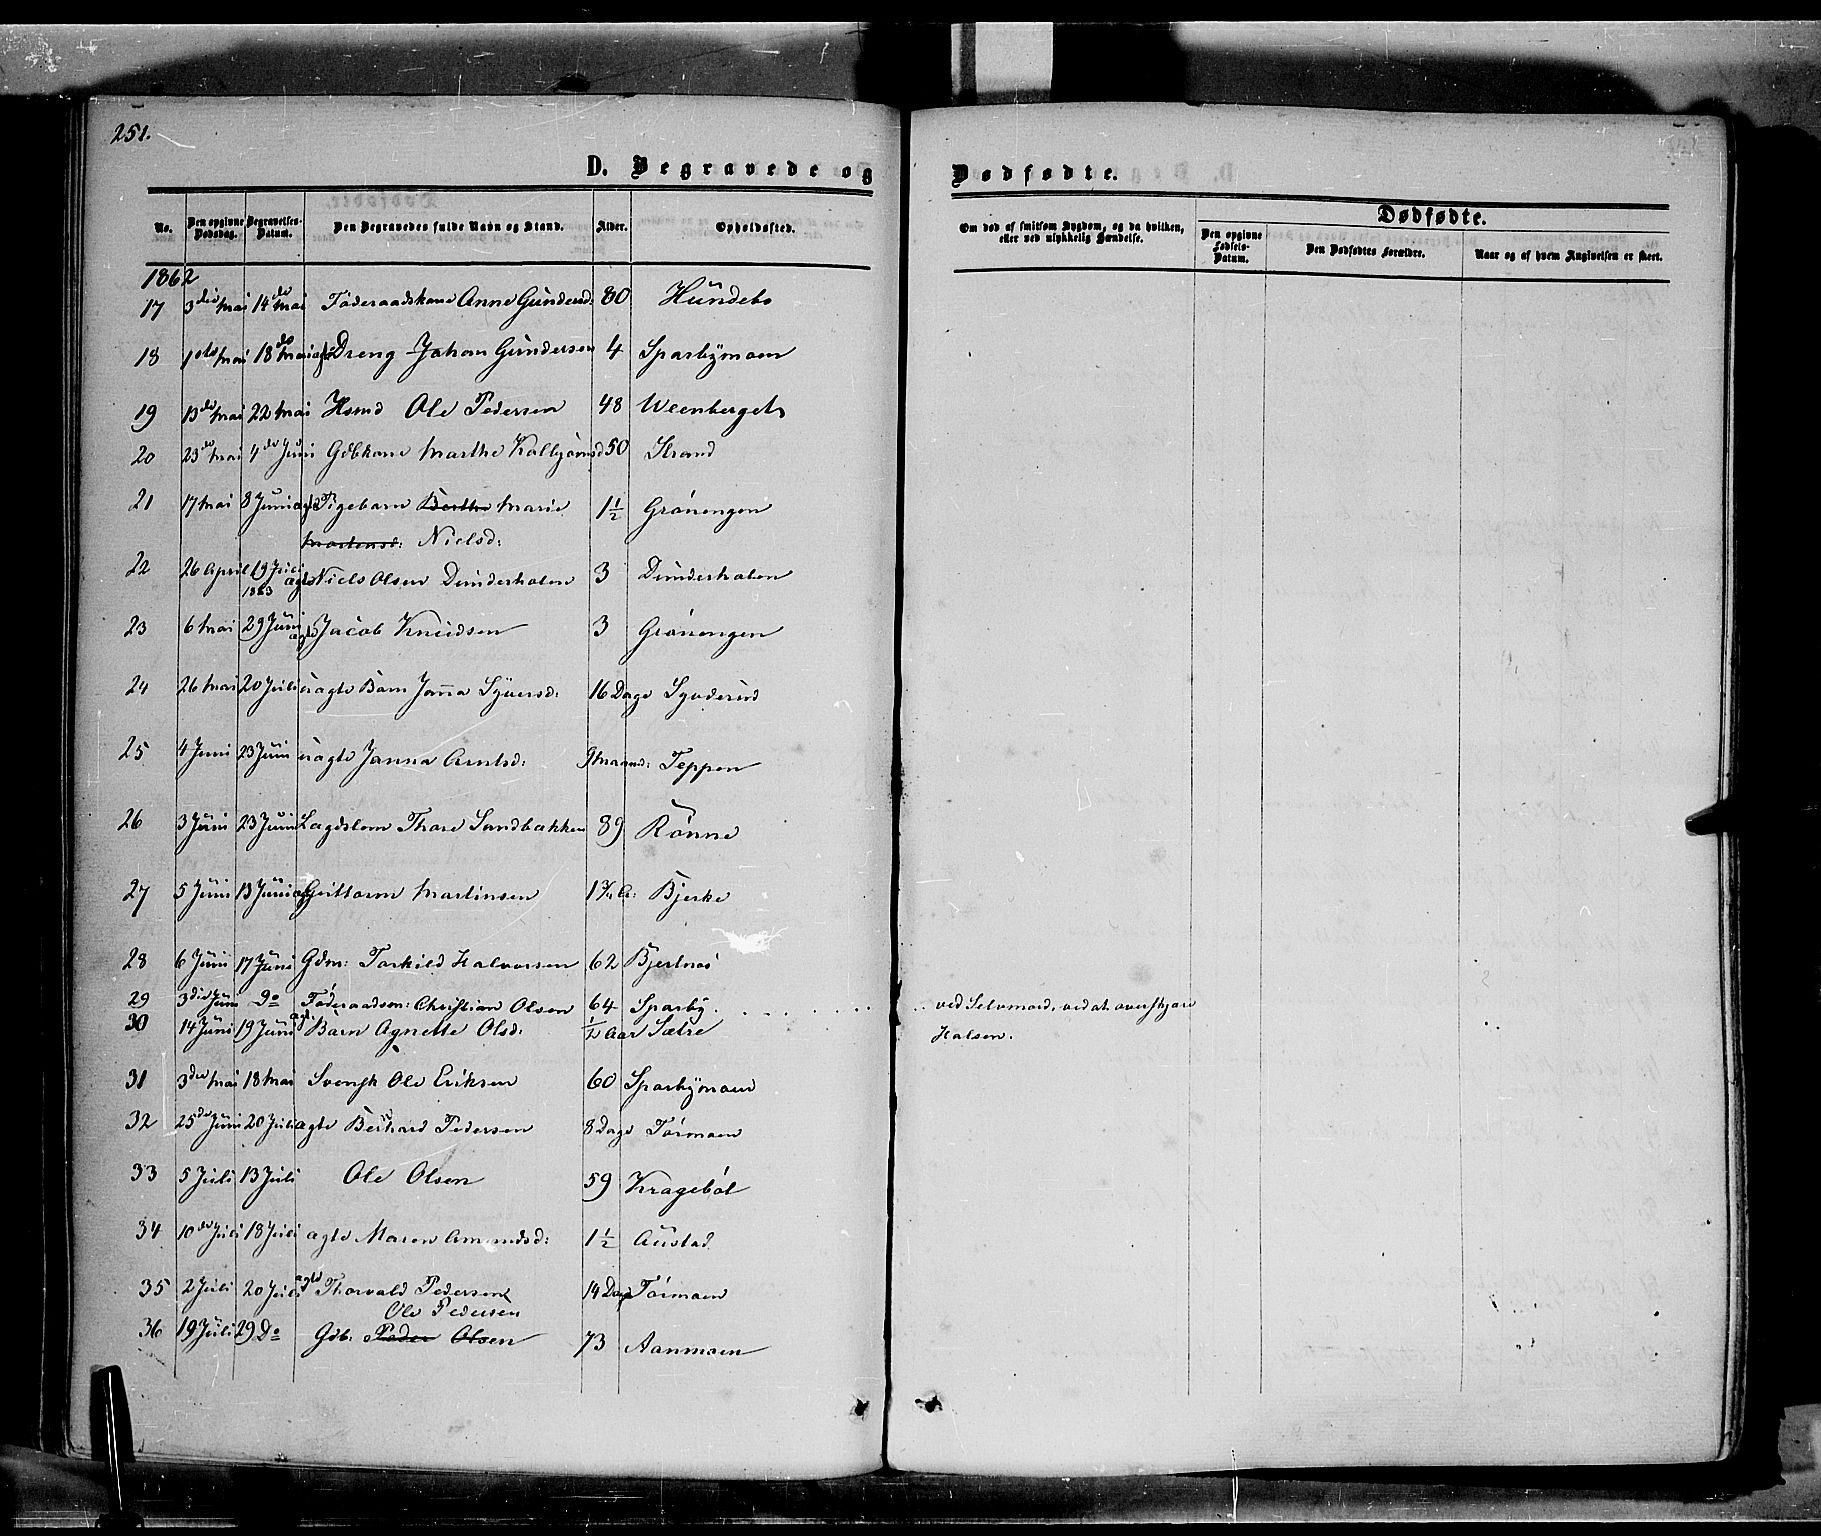 251.
D. Begravede og
Dødfødte.
No. Den opgivne Dødsdag. Begravelses-Datum. Den Begravedes fulde Navn og Stand. Alder. Opholdssted.
Om død af smitsom Sygdom, og da hvilken, eller ved ulykkelig Hændelse.
Dødfødte.
Den opgivne Fødsels-Datum. Den Dødfødtes Forældre. Naar og af hvem Angivelsen er skeet.
1862
17 3die Mai 14de Mai Føderaadskone Anne Gundersd: 80 Hundebo
18 1ste Mai 18de Mai Dreng Johan Gundersen 4 Sparbymoen
19 13de Mai 22 Mai Hsmd Ole Pedersen 48 Weenberget
20 23de Mai 4de Juni Gdbkone Marthe Kolbjørnsd 50 Strand
21 17 Mai 8 Juni ægte Pigebarn Berthe Marie 1½ Grønengen
Mortensd: Nielsd:
22 26 April 19 Juli 1863 ægte Niels Olsen Dunderholen 3 Dunderholen
23 6 Mai 29 Juni ægte Jacob Knudsen 3 Grønengen
24 26 Mai 20 Juli uægte Barn Janna Syversd: 16 Dage Syverud
25 4 Juni 23 Juni uægte Janna Arntsd: 9 Maaned: Teppen
26 3 Juni 23 Juni Lægdslem Thore Sandbakken 89 Rönne
27 5 Juni 13 Juni Guttorm Martinsen 1¾ A: Bjerke
28 6 Juni 17 Juni Gdm: Torkild Halvorsen 62 Bjertnæs
29 3die Juni Do Føderaadsm: Christian Olsen 64 Sparby. . . . . . . . . ved Selvmord, ved at overskjære
30 14 Juni 19 Juni ægte Barn Agnette Olsd: ½ Aar Sætre
Halsen.
31 3die Mai 18 Mai Svensk Ole Eriksen 60 Sparbymoen
32 25de Juni 20 Juli ægte Bernhard Pedersen 8 Dage Tørmoen
33 5 Juli 13 Juli Ole Olsen 59 Kragebøl
34 10de Juli 18 Juli ægte Maren Amundsd: 1½ Austad
35 2 Juli 20 Juli ægte Thorvald Pedersen 14 Dage Tørmoen
Ole Pedersen
36 19 Juli 29 Do Gdb: Peder Olsen 73 Aanmoen